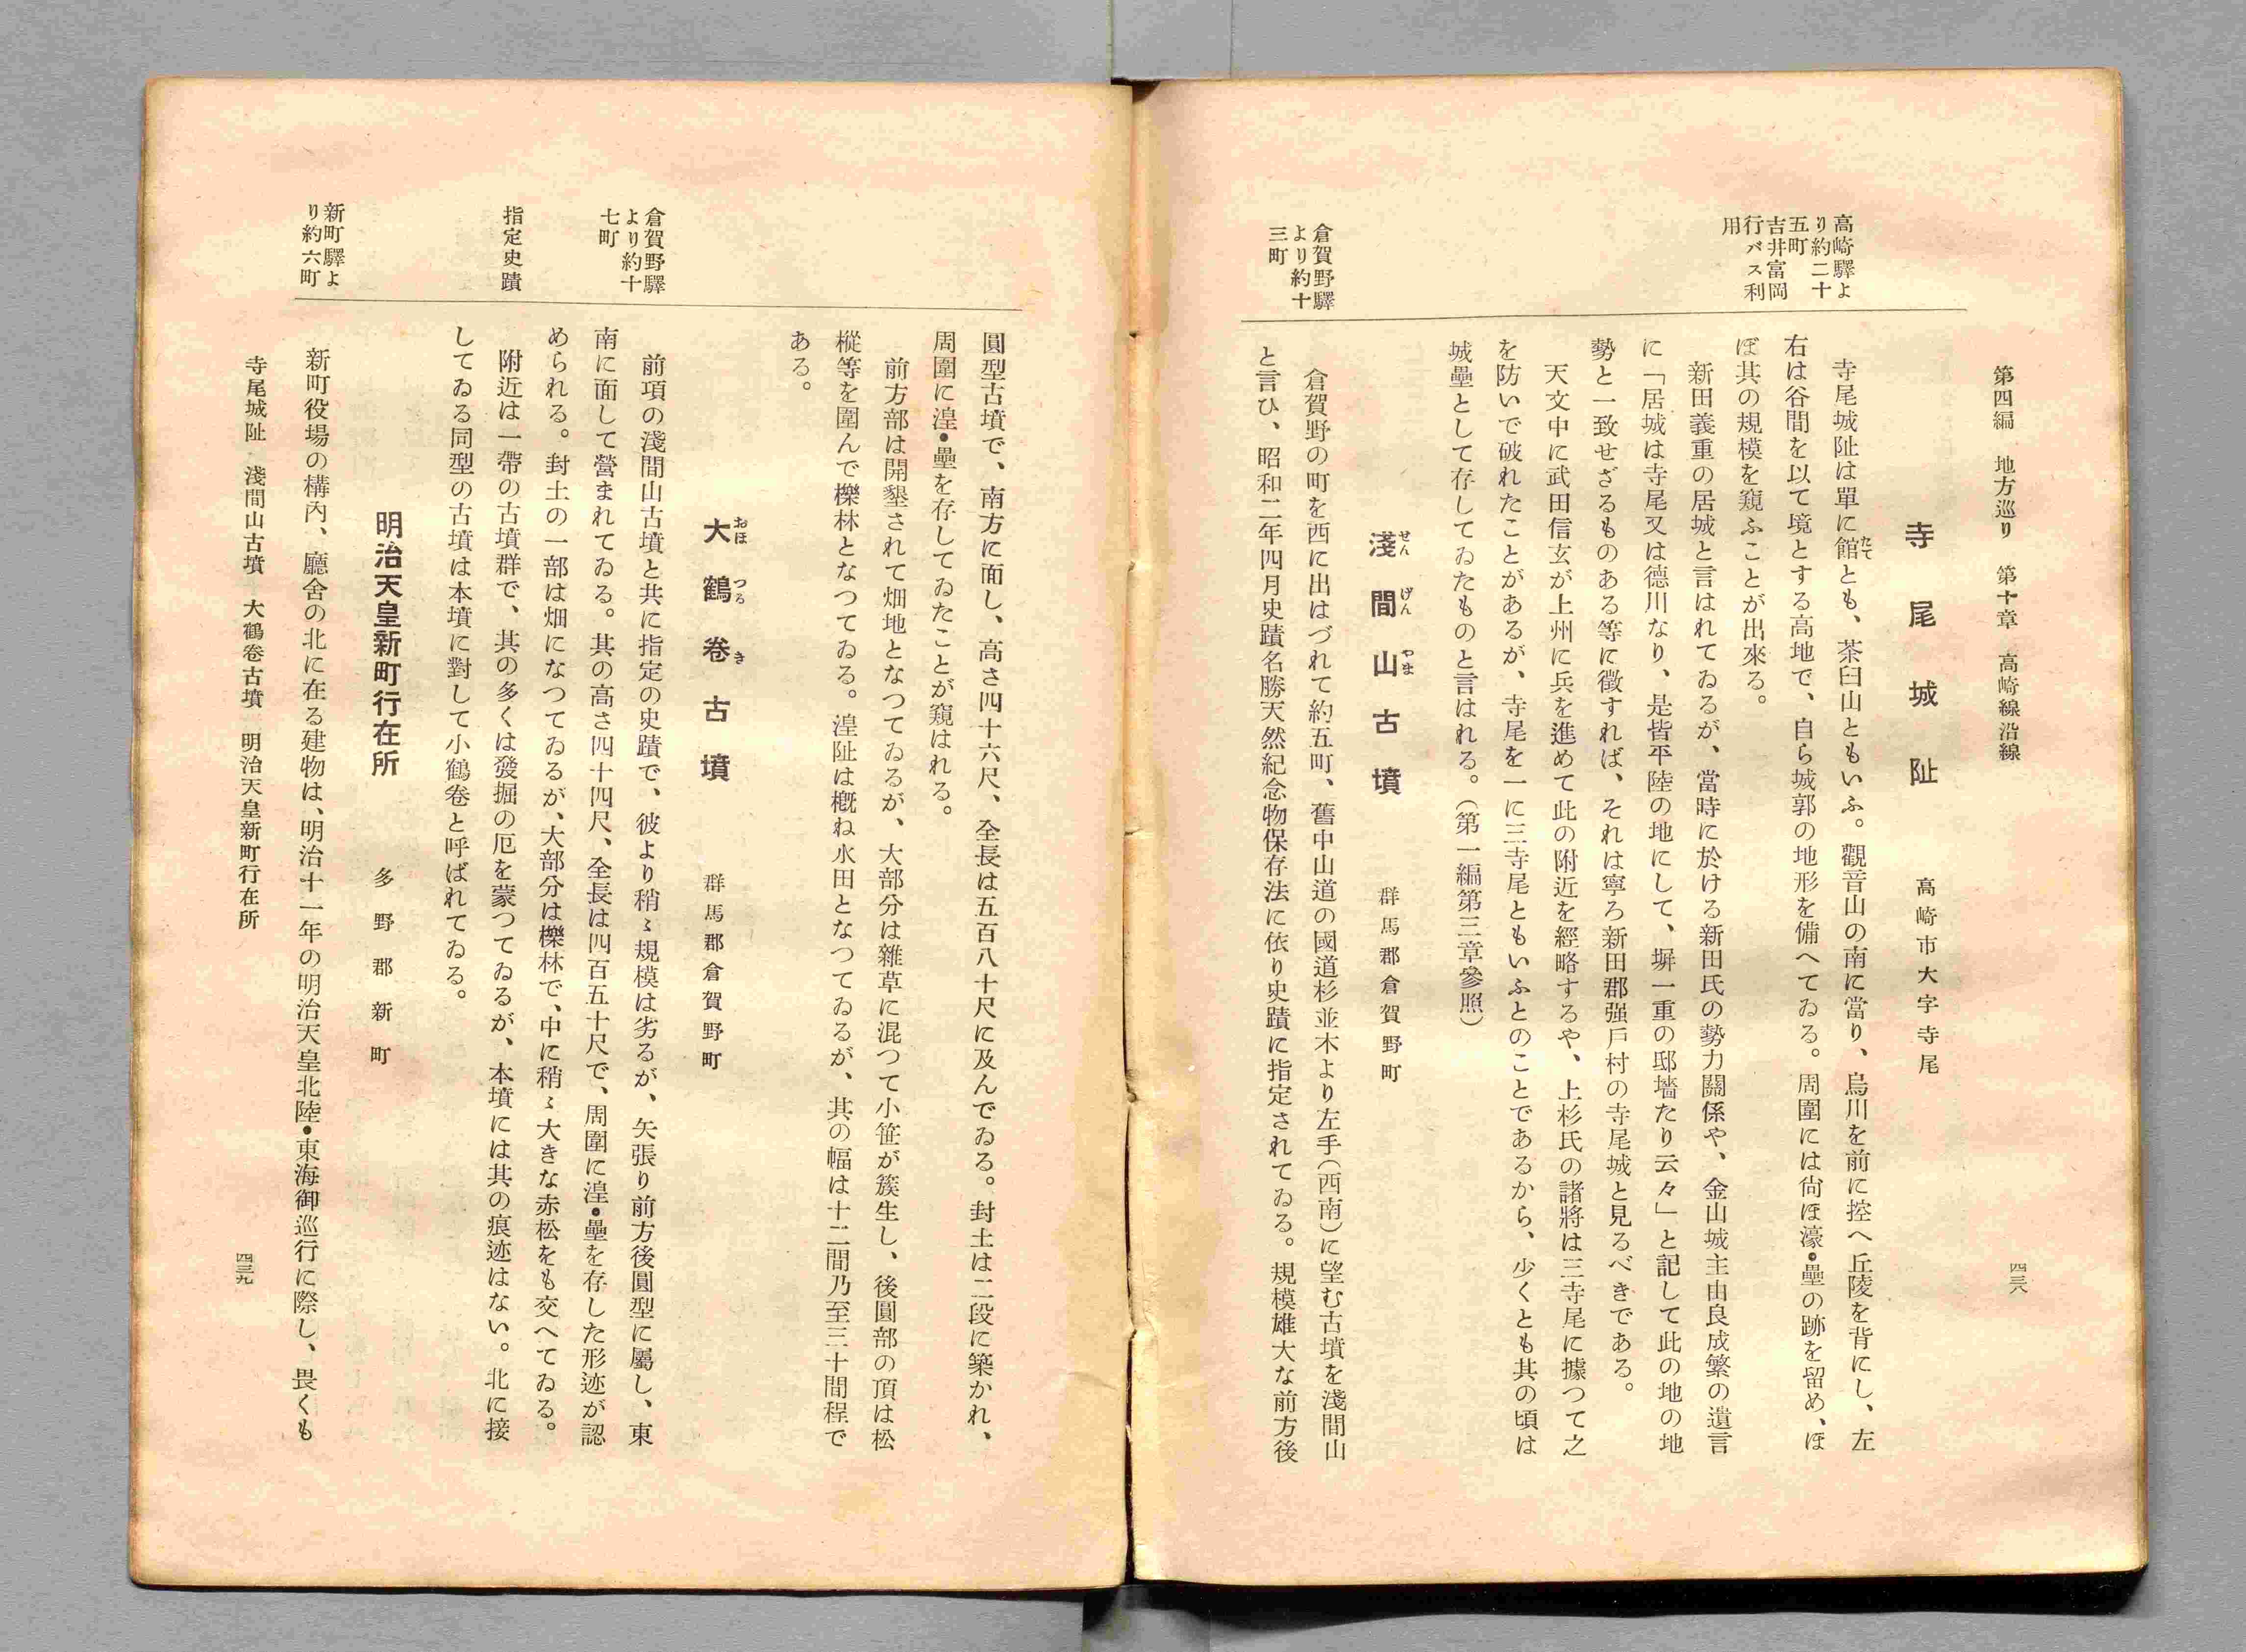 第四編　地方巡り　第十章　高崎線沿線
四三八
高崎驛よ
り約二十
五町
吉井富岡
行バス利
用
寺尾城阯　高崎市大字寺尾
寺尾城阯は單に館とも、茶臼山ともいふ。觀音山の南に當り、烏川を前に控へ丘陵を背にし、左
たて
右は谷間を以て境とする高地で、自ら城郭の地形を備へてゐる。周圍には尙ほ濠・壘の跡を留め、ほ
ぼ其の規模を窺ふことが出來る。
新田義重の居城と言はれてゐるが、當時に於ける新田氏の勢力關係や、金山城主由良成繁の遺言
に「居城は寺尾又は德川なり、是皆平陸の地にして、塀一重の邸墻たり云々」と記して此の地の地
勢と一致せざるものある等に徵すれば、それは寧ろ新田郡强戶村の寺尾城と見るべきである。
天文中に武田信玄が上州に兵を進めて此の附近を經略するや、上杉氏の諸將は三寺尾に據つて之
を防いで破れたことがあるが、寺尾を一に三寺尾ともいふとのことであるから、少くとも其の頃は
城壘として存してゐたものと言はれる。（第一編第三章參照）
倉賀野驛
より約十
三町
淺間山古墳　群馬郡倉賀野町
せんげんやま
倉賀野の町を西に出はづれて約五町、舊中山道の國道杉並木より左手（西南）に望む古墳を淺間山
と言ひ、昭和二年四月史蹟名勝天然紀念物保存法に依り史蹟に指定されてゐる。規模雄大な前方後
圓型古墳で、南方に面し、高さ四十六尺、全長は五百八十尺に及んでゐる。封土は二段に築かれ、
周圍に湟・壘を存してゐたことが窺はれる。
前方部は開墾されて畑地となつてゐるが、大部分は雜草に混つて小笹が簇生し、後圓部の頂は松
樅等を圍んで櫟林となつてゐる。湟阯は槪ね水田となつてゐるが、其の幅は十二間乃至三十間程で
ある。
倉賀野驛
より約十
七町
大鶴卷古墳　群馬郡倉賀野町
おほつるき
指定史蹟
前項の淺間山古墳と共に指定の史蹟で、彼より稍〻規模は劣るが、矢張り前方後圓型に屬し、東
南に面して營まれてゐる。其の高さ四十四尺、全長は四百五十尺で、周圍に湟・壘を存した形迹が認
められる。封土の一部は畑になつてゐるが、大部分は櫟林で、中に稍〻大きな赤松をも交へてゐる。
附近は一帶の古墳群で、其の多くは發掘の厄を蒙つてゐるが、本墳には其の痕迹はない。北に接
してゐる同型の古墳は本墳に對して小鶴卷と呼ばれてゐる。
新町驛よ
り約六町
明治天皇新町行在所　多野郡新町
新町役場の構內、廳舍の北に在る建物は、明治十一年の明治天皇北陸・東海御巡行に際し、畏くも
寺尾城阯　淺間山古墳　大鶴卷古墳　明治天皇新町行在所
四三九